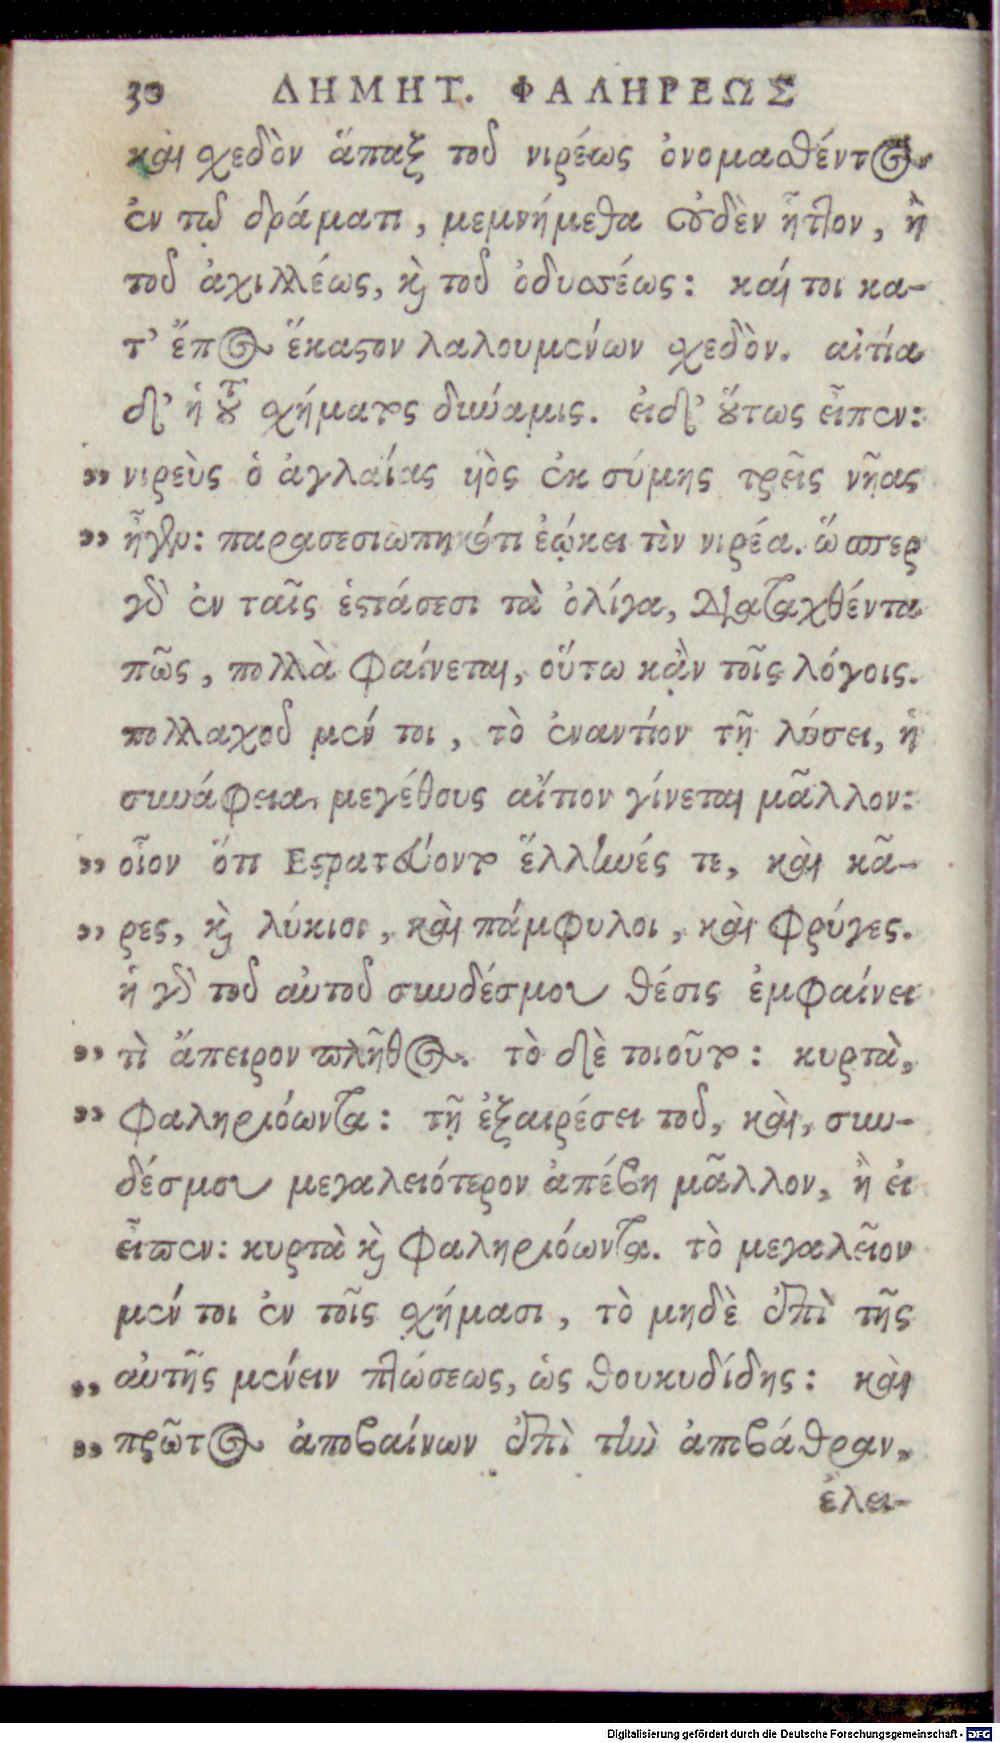 30 ΔΗΜΗΤ. ΦΑΛΗΡΕΩΣ
καὶ σχεδὸν ἅπαξ τοῦ νιρέως ὀνομασθέντος
ἐν τῷ δράματι, μεμνήμεθα οὐδὲν ἧττον, ἢ
τοῦ ἀχιλλέως, καὶ τοῦ ὀδυσσέως: καί τοι κα-
τ' ἔπος ἕκαστον λαλουμένων σχεδὸν. αἰτία
δ' ἡ τοῦ σχήματος δύναμις. εἰ δ' οὕτως εἶπεν:
„ νιρεὺς ὁ ἀγλαίας υἱὸς ἐκ σύμης τρεῖς νῆας
„ ἦγεν: παρασεσιωπηκότι ἐῴκει τὸν νιρέα. ὥσπερ
γὰρ ἐν ταῖς ἑστάσεσι τὰ ὀλίγα, διαταχθέντα
πῶς, πολλὰ φαίνεται, οὕτω κἂν τοῖς λόγοις.
πολλαχοῦ μέν τοι, τὸ ἐναντίον τῇ λύσει, ἡ
συνάφεια, μεγέθους αἴτιον γίνεται μᾶλλον:
„ οἷον ὅτι Εστρατεύοντο ἕλληνές τε, καὶ κᾶ-
„ ρες, καὶ λύκιοι, καὶ πάμφυλοι, καὶ φρύγες.
ἡ γὰρ τοῦ αὐτοῦ συνδέσμου θέσις ἐμφαίνει
„ τὶ ἄπειρον πλῆθος. τὸ δὲ τοιοῦτο: κυρτὰ,
„ φαληριόωντα: τῇ ἐξαιρέσει τοῦ, καὶ, συν-
δέσμου μεγαλειότερον ἀπέβη μᾶλλον, ἢ εἰ
εἶπεν: κυρτὰ καὶ φαληριόωντα. τὸ μεγαλεῖον
μέν τοι ἐν τοῖς σχήμασι, τὸ μηδὲ ἐπὶ τῆς
„ αὐτῆς μένειν πτώσεως, ὡς θουκυδίδης: καὶ
„ πρῶτος ἀποβαίνων ἐπὶ τὴν ἀποβάθραν,
ἐλει-
Digitalisierung gefördert durch die Deutsche Forschungsgemeinschaft - DFG